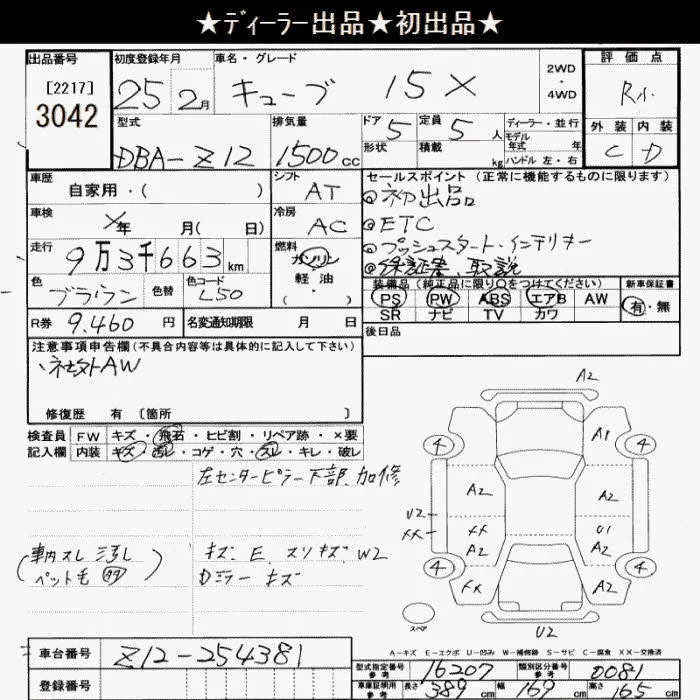 ★ディーラー出品★初出品★
出品番号
[2217]
3042
初度登録年月
25 2月
車名・グレード
キューブ 15X
2WD
・
4WD
評価点
R
外装 内装
C D
型式
DBA-Z12
排気量
1500cc
ドア 5
形状
定員 5人
積載 kg
ディーラー・並行
モデル
年式 年
ハンドル 左・右
車歴
自家用・( )
シフト
AT
車検
年 月( 日)
冷房
AC
走行
9万3千663km
燃料
ガソリン
軽油
( ・ )
色
ブラウン
色替
色コード
L50
R券 9,460円
名変通知期限 月 日
セールスポイント(正常に機能するものに限ります)
初出品
ETC
プッシュスタート・インテリキー
保証書、取説
装備品(純正品に限り○をつけてください)
PS PW ABS エアB AW
SR ナビ TV カワ
新車保証書
有・無
後日品
注意事項申告欄(不具合内容等は具体的に記入して下さい)
・社外AW
修復歴 有 〔箇所 〕
検査員 FW キズ・飛石・ヒビ割・リペア跡・×要
記入欄 内装 キズ・汚レ・コゲ・穴・スレ・キレ・破レ
左センターピラー下部 加修
(車内スレ 汚レ
ペット毛 )
キズ E スリキズ W2
Dミラー キズ
A2
4 A1 4
A2 A2
U2
XX XX U1
A2 A2
4 4
XX A2
スペア
U2
A-キズ E-エクボ U-凹み W-補修跡 S-サビ C-腐食 XX-交換済
車台番号 Z12-254381
登録番号
型式指定番号
参考
16207
類別区分番号
参考
0081
車庫証明用
参考
長さ 389cm 幅 169cm 高さ 165cm